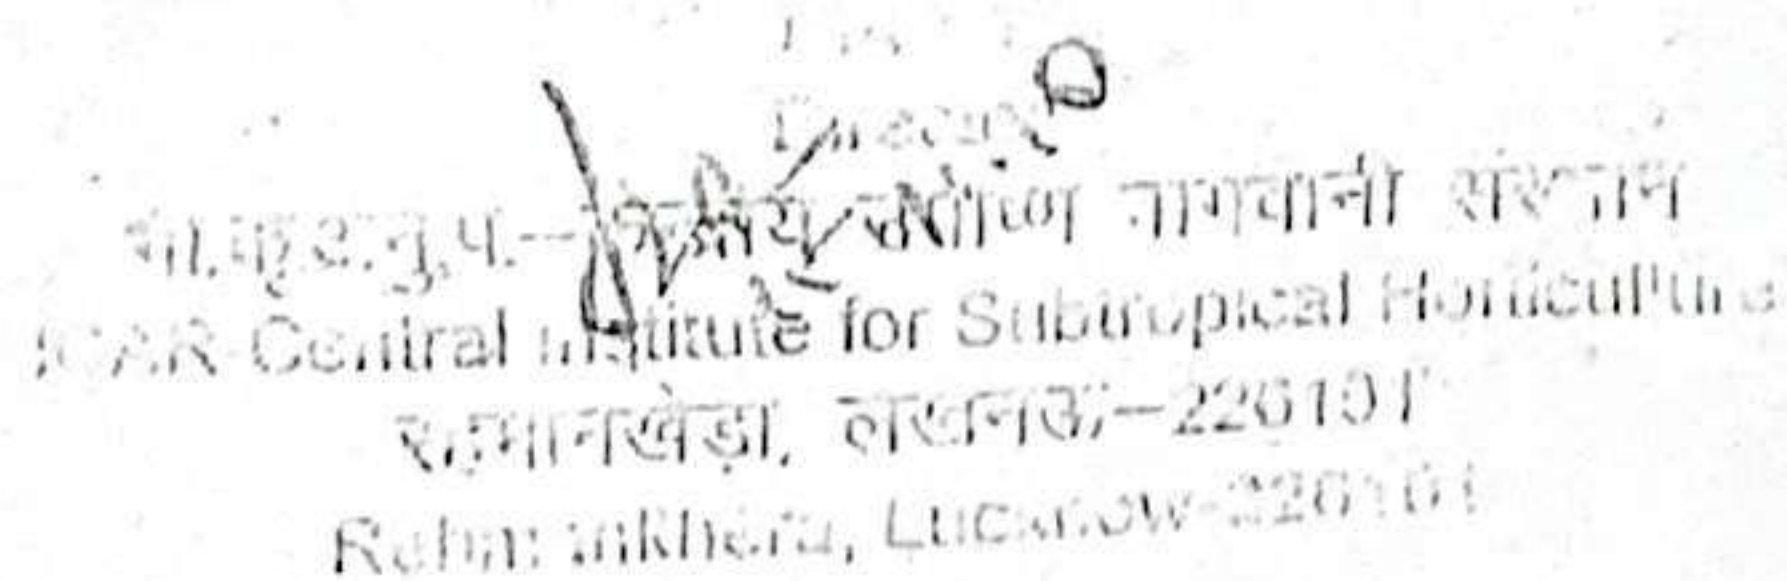 Director
भा.कृ.अ.नु.प.–केन्द्रीय उपोष्ण बागवानी संस्थान
ICAR-Central Institute for Subtropical Horticulture
रहमानखेड़ा, लखनऊ–226101
Rehmankhera, Lucknow-226101